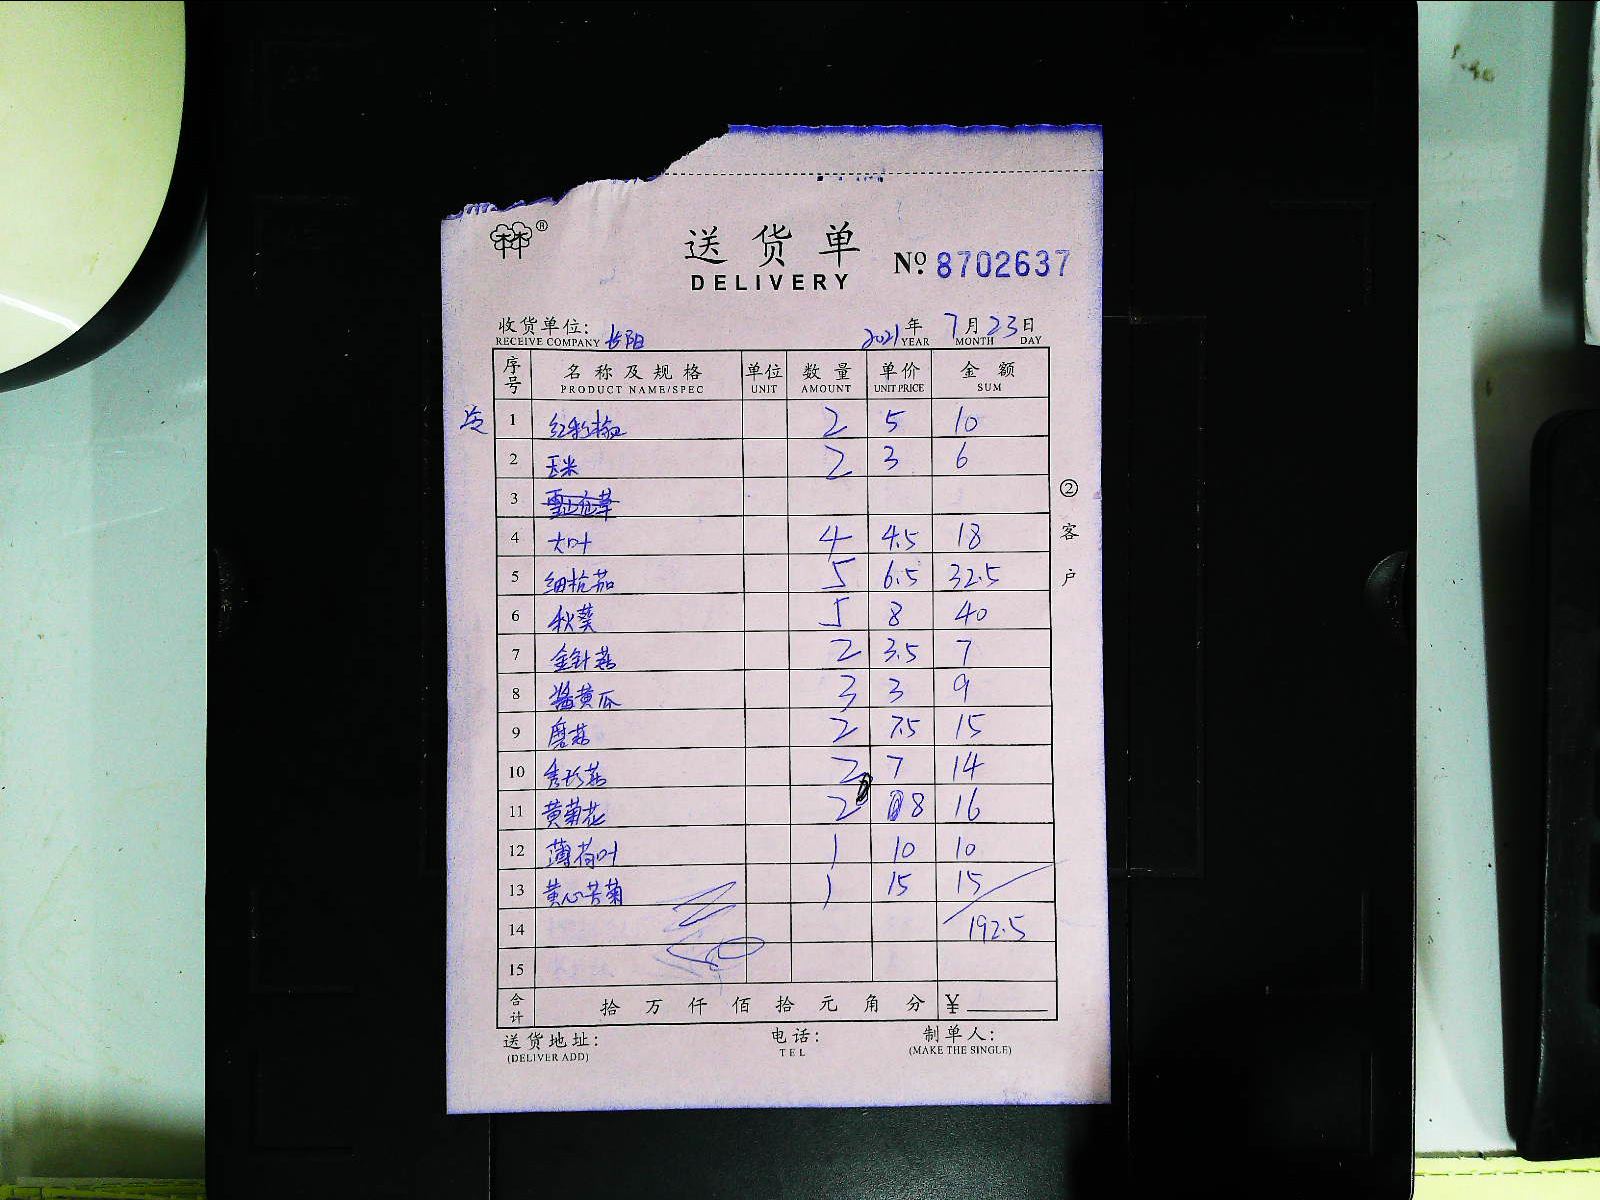 林®
送货单
DELIVERY
№ 8702637
收货单位: 长阳 2021年 7月23日
RECEIVE COMPANY YEAR MONTH DAY
序号 名称及规格 单位 数量 单价 金额
PRODUCT NAME/SPEC UNIT AMOUNT UNIT PRICE SUM
1 2 5 10
2 玉米 2 3 6
3
4 大叶 4 4.5 18
5 细杭茄 5 6.5 32.5
6 秋葵 5 8 40
7 金针菇 2 3.5 7
8 酱黄瓜 3 3 9
9 磨菇 2 7.5 15
10 秀珍菇 2 7 14
11 黄菊花 2 8 16
12 薄荷叶 1 10 10
13 黄心苦菊 1 15 15
14 192.5
15
合计 拾万仟佰拾元角分 ¥
②客户
送货地址: 电话: 制单人:
(DELIVER ADD) TEL (MAKE THE SINGLE)